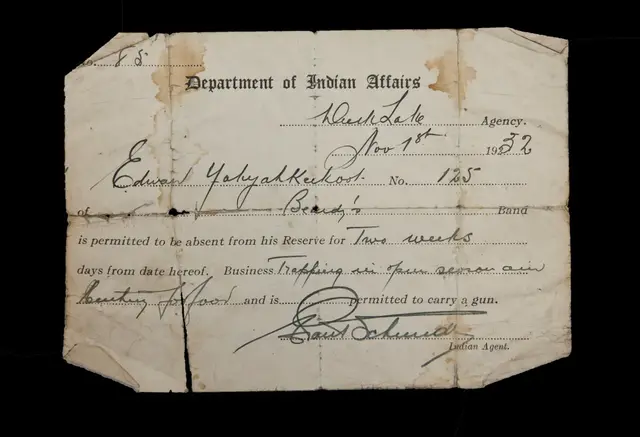 No. 85
Department of Indian Affairs
Duck Lake Agency.
Nov 1st 1932
Edward Yahyahkeekoot No. 125
of Beardy's Band
is permitted to be absent from his Reserve for Two weeks
days from date hereof. Business Trapping in open season and
Hunting for food and is permitted to carry a gun.
Paul Schmidt
Indian Agent.